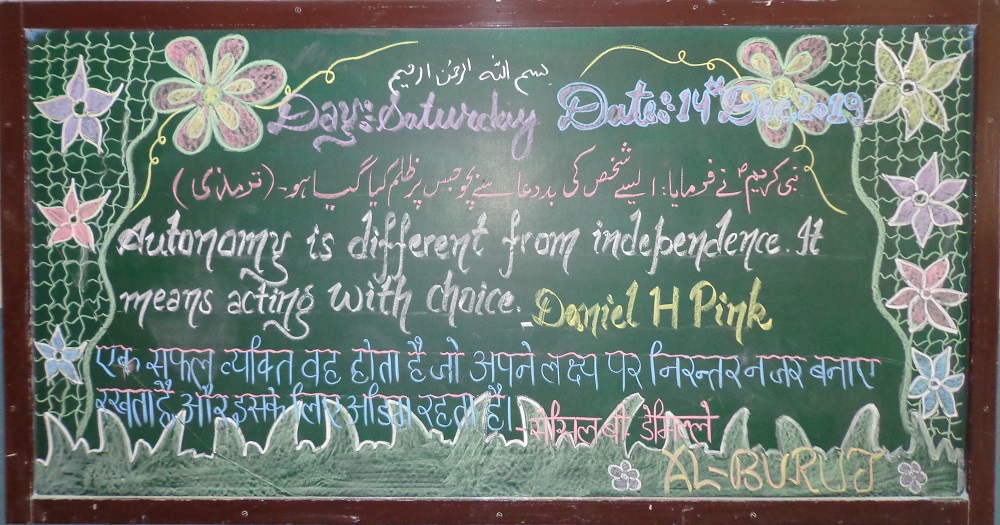 بسم اللہ الرحمٰن الرحیم
Day: Saturday Date: 14th Dec. 2019
نبی کریمؐ نے فرمایا: ایسے شخص کی بددعا سے بچو جس پر ظلم کیا گیا ہو۔ (ترمذی)
Autonomy is different from independence. It
means acting with choice. _ Daniel H Pink
एक सफल व्यक्ति वह होता है जो अपने लक्ष्य पर निरन्तर नजर बनाए
रखता है, और इसके लिए अडिग रहता है। - सीसिल बी. डेमिल्ले
AL-BURUJ